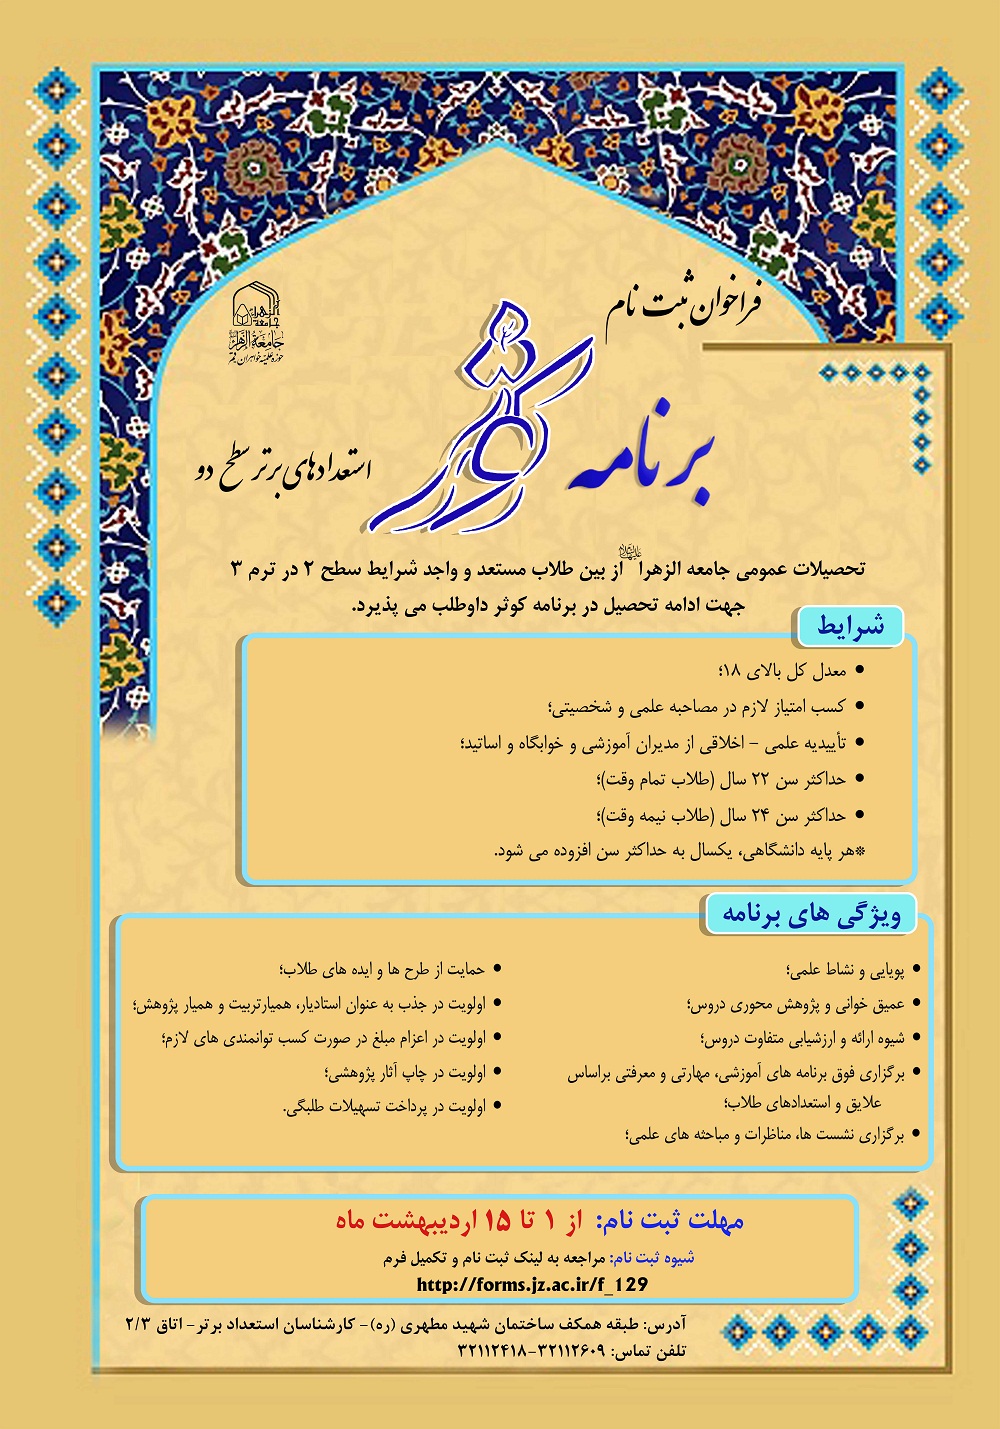 فراخوان ثبت نام
جامعة الزهرا
حوزه علمیه خواهران قم
برنامه کوثر
استعدادهای برتر سطح دو
تحصیلات عمومی جامعه الزهرا از بین طلاب مستعد و واجد شرایط سطح ۲ در ترم ۳
جهت ادامه تحصیل در برنامه کوثر داوطلب می پذیرد.
شرایط
• معدل کل بالای ۱۸؛
• کسب امتیاز لازم در مصاحبه علمی و شخصیتی؛
• تأییدیه علمی - اخلاقی از مدیران آموزشی و خوابگاه و اساتید؛
• حداکثر سن ۲۲ سال (طلاب تمام وقت)؛
• حداکثر سن ۲۴ سال (طلاب نیمه وقت)؛
*هر پایه دانشگاهی، یکسال به حداکثر سن افزوده می شود.
ویژگی های برنامه
• پویایی و نشاط علمی؛
• عمیق خوانی و پژوهش محوری دروس؛
• شیوه ارائه و ارزشیابی متفاوت دروس؛
• برگزاری فوق برنامه های آموزشی، مهارتی و معرفتی براساس
علایق و استعدادهای طلاب؛
• برگزاری نشست ها، مناظرات و مباحثه های علمی؛
• حمایت از طرح ها و ایده های طلاب؛
• اولویت در جذب به عنوان استادیار، همیارتربیت و همیار پژوهش؛
• اولویت در اعزام مبلغ در صورت کسب توانمندی های لازم؛
• اولویت در چاپ آثار پژوهشی؛
• اولویت در پرداخت تسهیلات طلبگی.
مهلت ثبت نام: از ۱ تا ۱۵ اردیبهشت ماه
شیوه ثبت نام: مراجعه به لینک ثبت نام و تکمیل فرم
http://forms.jz.ac.ir/f_129
آدرس: طبقه همکف ساختمان شهید مطهری (ره)- کارشناسان استعداد برتر- اتاق ۲/۳
تلفن تماس: ۳۲۱۱۲۶۰۹-۳۲۱۱۲۴۱۸